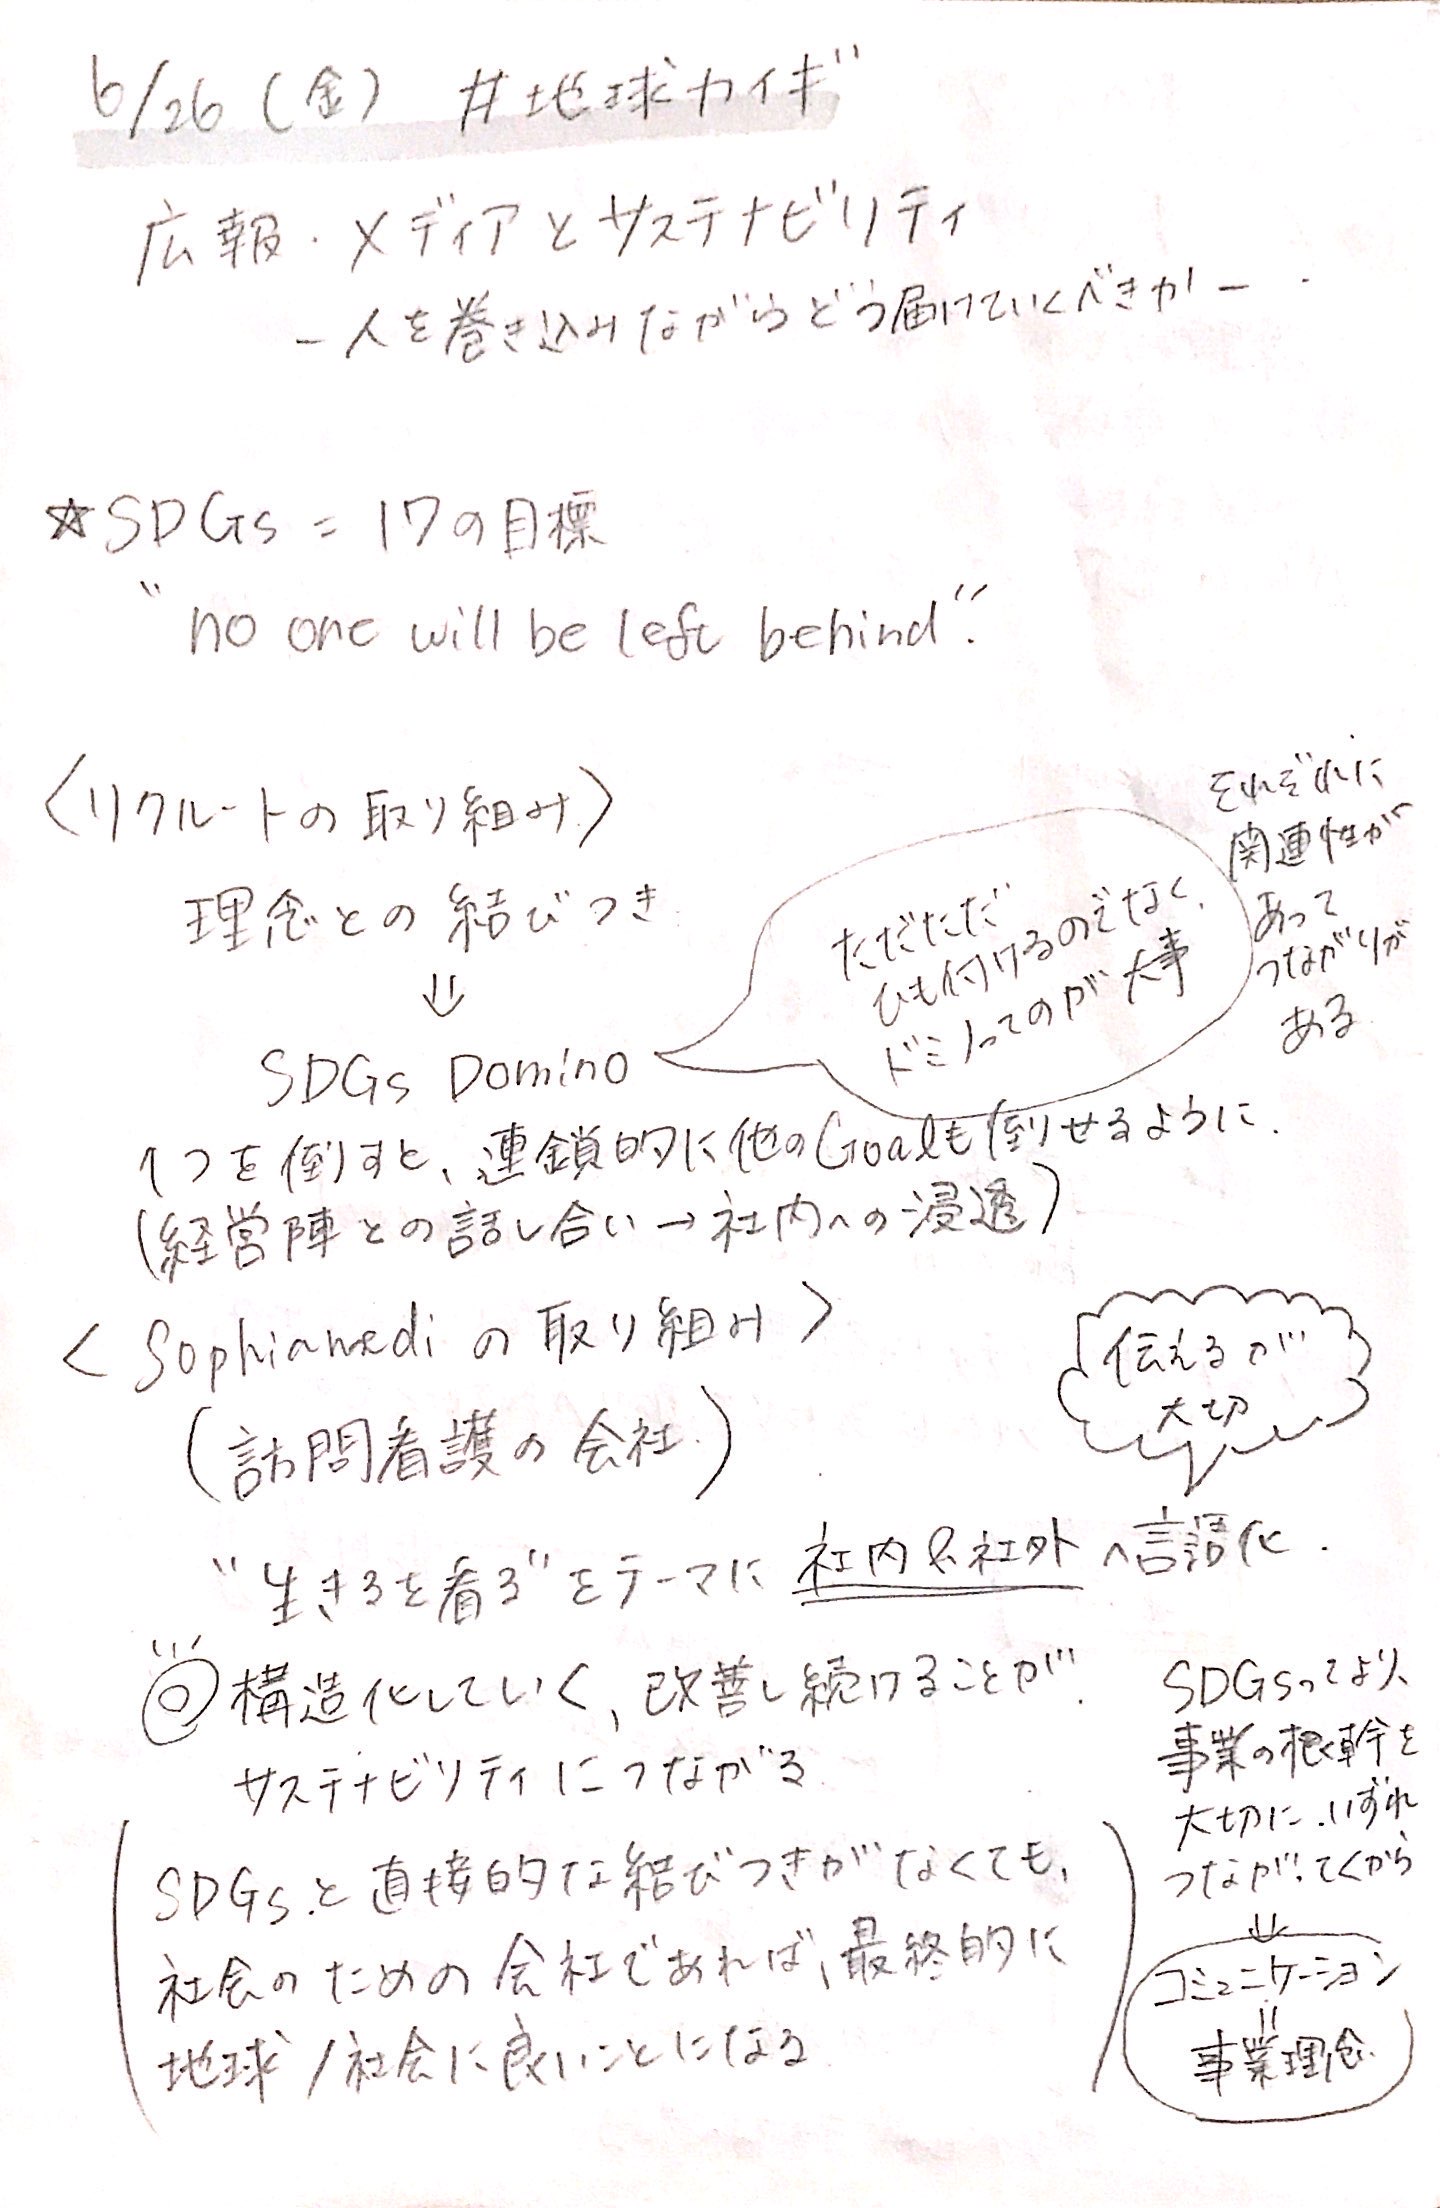 6/26(金) #地球カイギ
広報・メディアとサステナビリティ
-人を巻き込みながらどう届けていくべきか-
☆SDGs=17の目標
"no one will be left behind".
<リクルートの取り組み>
理念との結びつき
⇓
SDGs Domino
ただただ
ひも付けるのでなく、
ドミノってのが大事
それぞれに
関連性が
あって
つながりが
ある
1つを倒すと、連鎖的に他のGoalも倒せるように.
(経営陣との話し合い→社内への浸透)
<Sophiamediの取り組み>
(訪問看護の会社.)
伝えるが
大切
"生きるを看る"をテーマに 社内&社外へ言語化.
◎構造化していく、改善し続けることが
サステナビリティにつながる
(SDGsと直接的な結びつきがなくても、
社会のための会社であれば、最終的に
地球/社会に良いことになる)
SDGsってより、
事業の根幹を
大切に.いずれ
つながってくから
⇓
コミュニケーション
=
事業理念